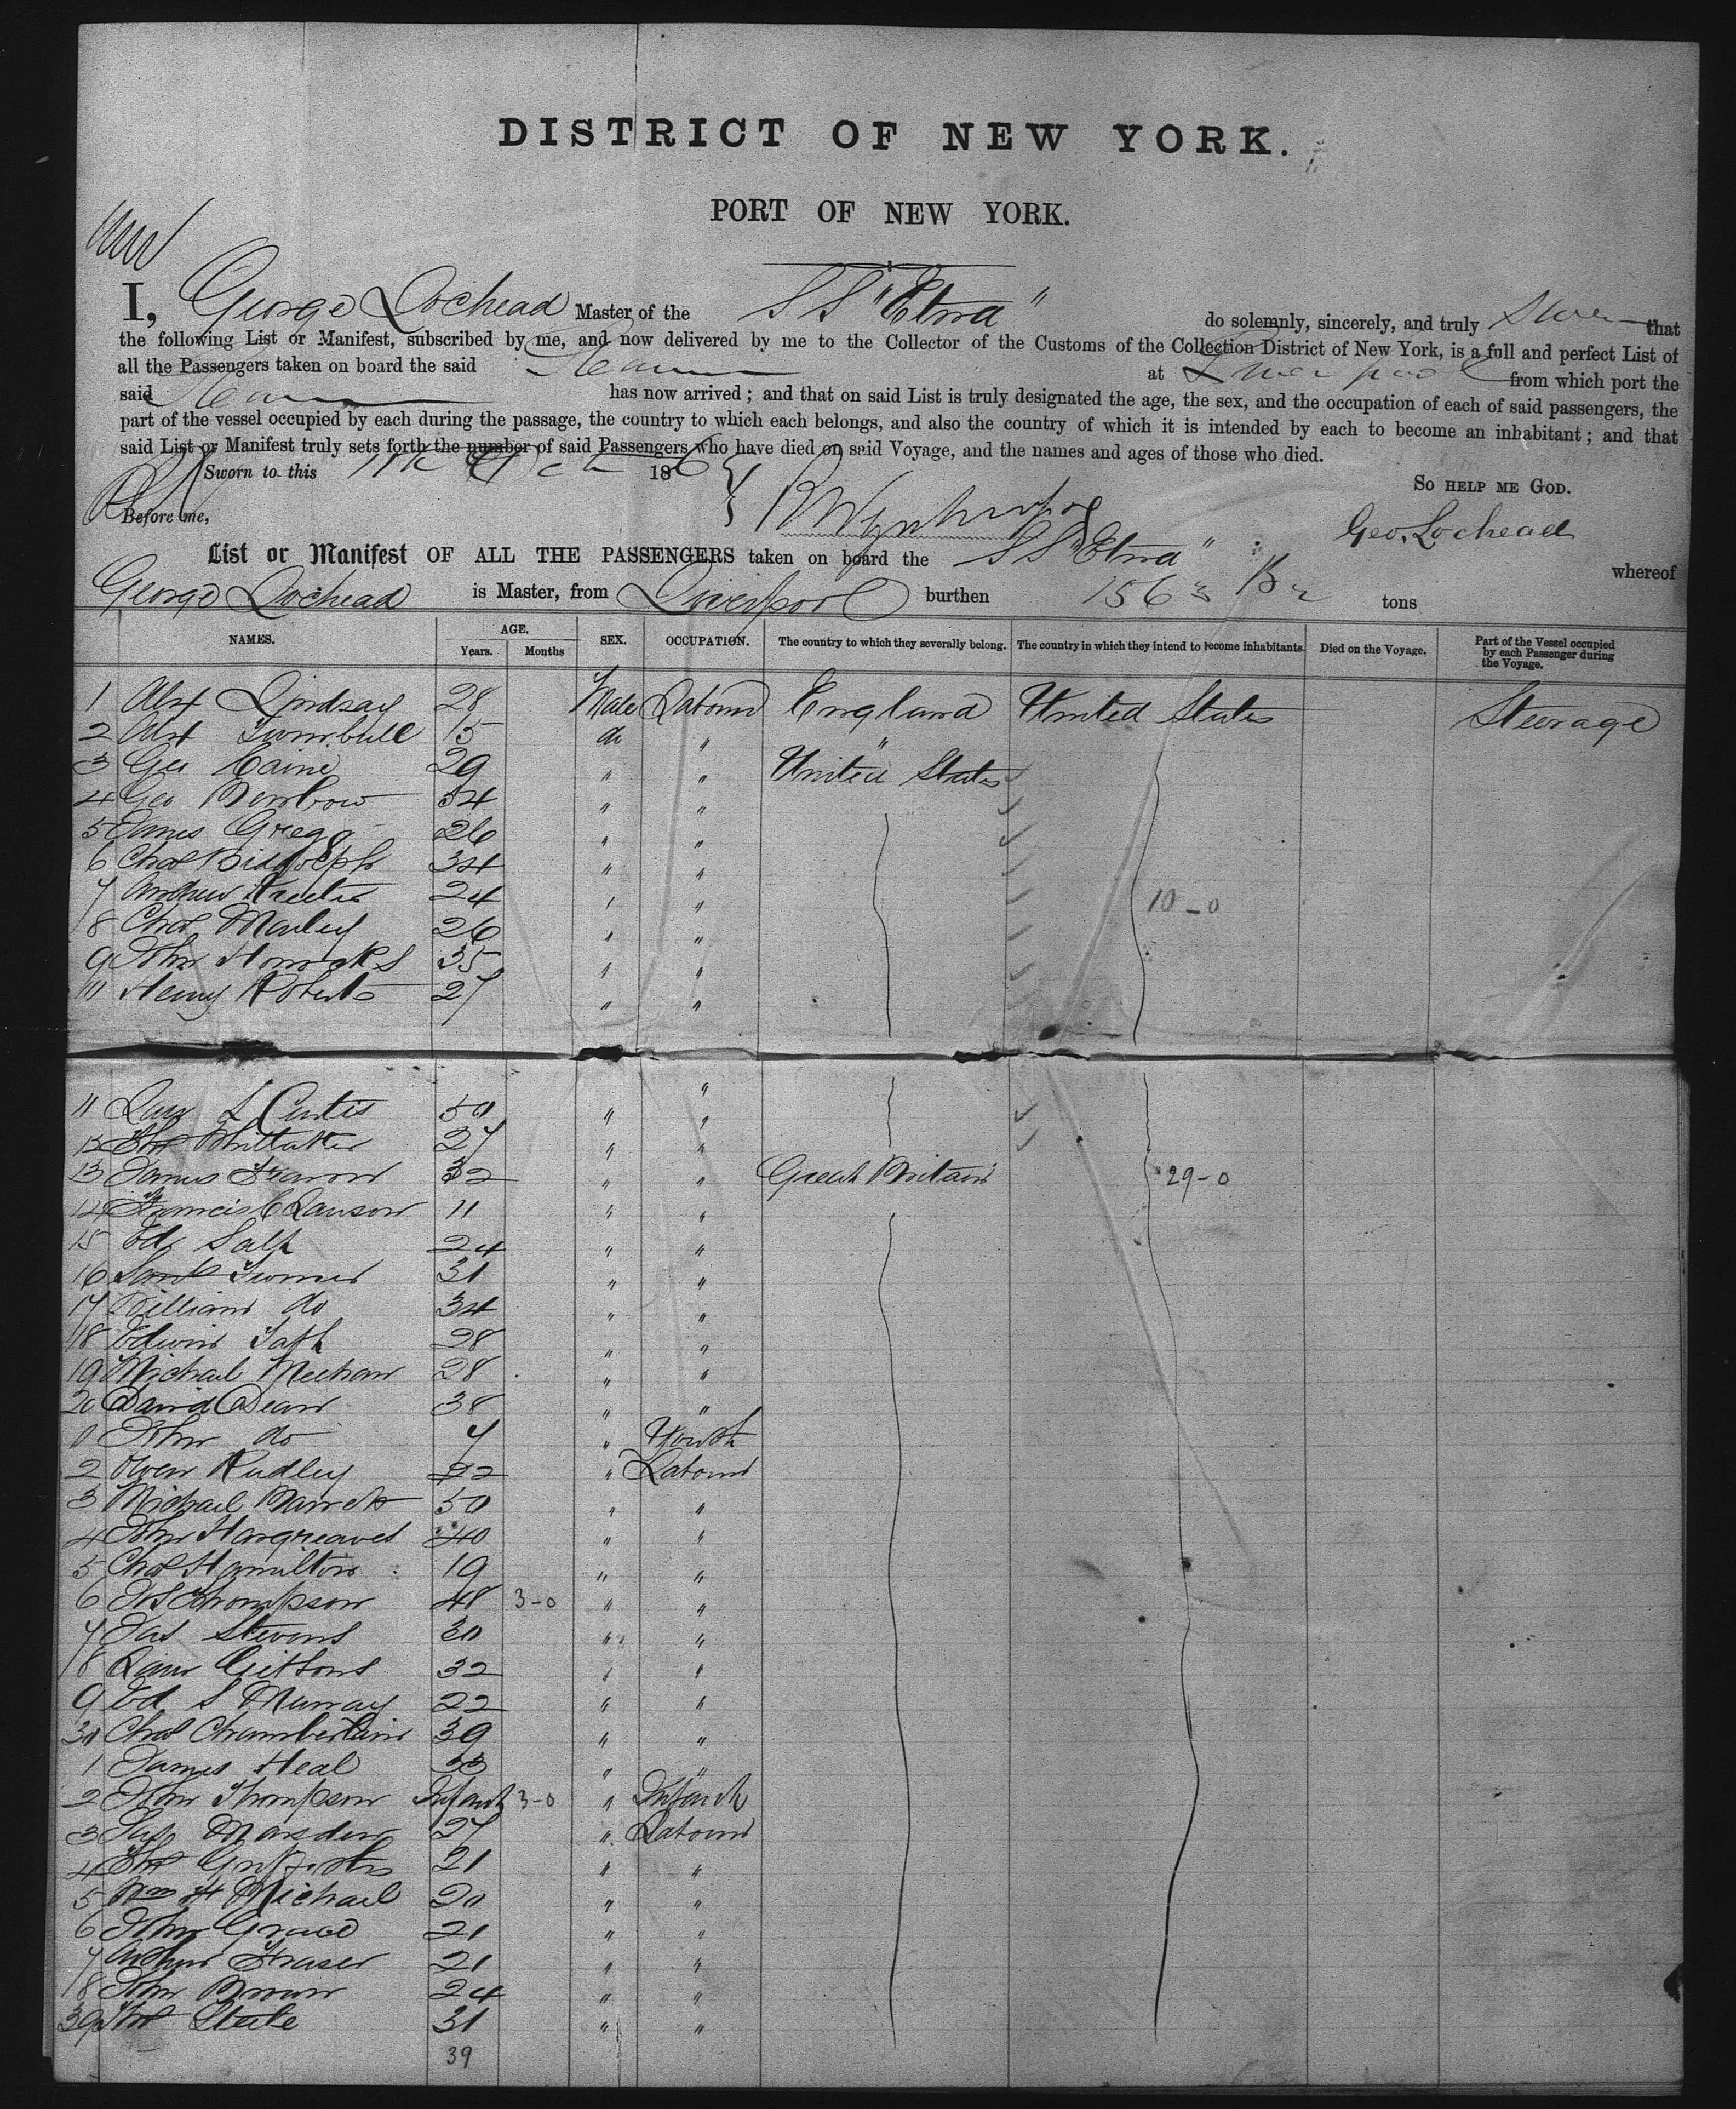 DISTRICT OF NEW YORK.
PORT OF NEW YORK.
I, George Lochead Master of the SS "Etna" do solemnly, sincerely, and truly swear that
the following List or Manifest, subscribed by me, and now delivered by me to the Collector of the Customs of the Collection District of New York, is a full and perfect List of
all the Passengers taken on board the said Steamer at Liverpool from which port the
said Steamer has now arrived; and that on said List is truly designated the age, the sex, and the occupation of each of said passengers, the
part of the vessel occupied by each during the passage, the country to which each belongs, and also the country of which it is intended by each to become an inhabitant; and that
said List or Manifest truly sets forth the number of said Passengers who have died on said Voyage, and the names and ages of those who died.
Sworn to this Oct 186
So HELP ME GOD.
Before me,
Geo. Lochead
List or Manifest OF ALL THE PASSENGERS taken on board the SS "Etna" whereof
George Lochead is Master, from Liverpool burthen 156 tons
NAMES. AGE. Years. Months SEX. OCCUPATION. The country to which they severally belong. The country in which they intend to become inhabitants. Died on the Voyage. Part of the Vessel occupied by each Passenger during the Voyage.
1 Alex Lindsay 28 Male Labourer England United States Steerage
2 Alex Turnbull 15 do " "
3 Geo Caine 29 " " United States
4 Geo Benbow 34 " "
5 James Gregg 26 " "
6 Chas Biddolph 34 " "
7 Andrew 24 " " 10-0
8 Chas Marley 26 " "
9 John Horrocks 35 " "
10 Henry Roberts 27 " "
"
11 L Curtis 50 " "
12 Thos Whittaker 27 " "
13 James Fearon 32 " " Great Britain 29-0
14 Francis C Lawson 11 " "
15 Ed Salt 24 " "
16 Saml Turner 31 " "
17 William do 34 " "
18 Edwin Taft 28 " "
19 Michael Meehan 28 " "
20 David Dean 38 " "
1 John do 7 " Youth
2 Owen Rudley 22 " Labourer
3 Michael 50 " "
4 John Hargreaves 40 " "
5 Chas Hamilton 19 " "
6 Thompson 48 3-0 " "
7 Jas Stevens 30 " "
8 Gibbons 32 " "
9 Ed S Murray 22 " "
30 Chas Chamberlain 39 " "
1 James Heal 33 " "
2 John Thompson Infant 3-0 " Infant
3 Marsden 27 " Labourer
4 Thos Griffiths 21 " "
5 Wm H Michael 20 " "
6 John Grace 21 " "
7 Arthur Fraser 21 " "
8 John Brown 24 " "
39 Thos Steele 31 " "
39